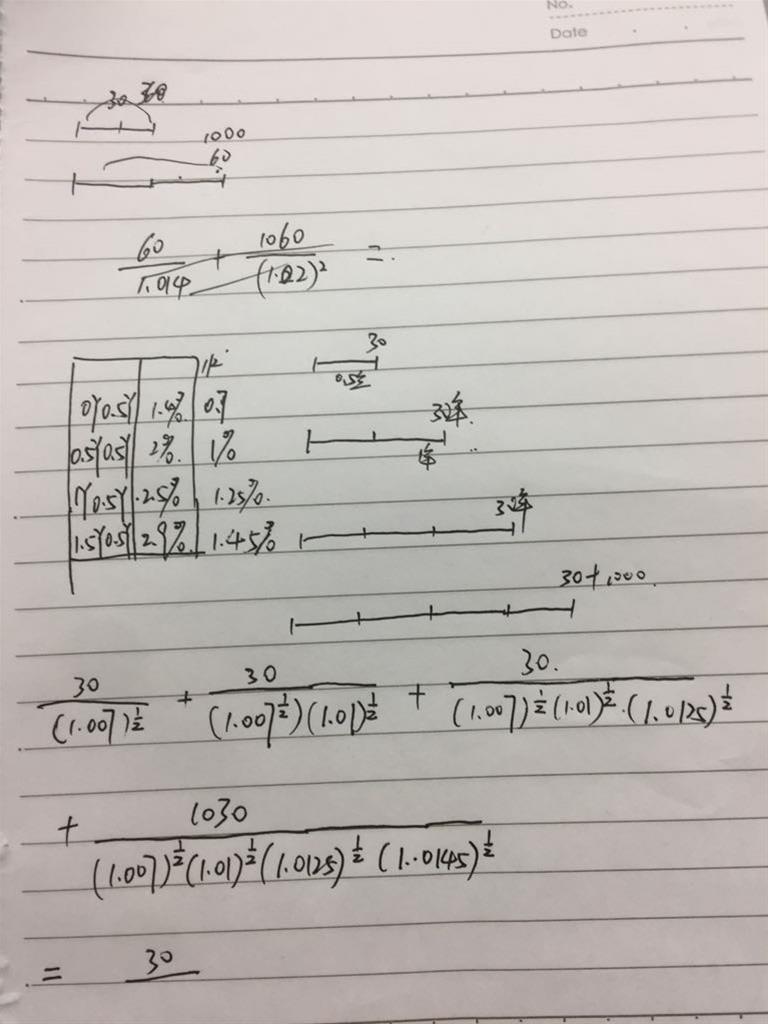 No.
Date
30
1000
60
60/1.014 + 1060/(1.022)² =
0Y 0.5Y 1.4% 0.7
0.5Y 0.5Y 2% 1%
1Y 0.5Y 2.5% 1.25%
1.5Y 0.5Y 2.9% 1.45%
30
0.5年
1年
30+1000
30/(1.007)^½ + 30/(1.007^½)(1.01)^½ + 30/(1.007)^½(1.01)^½·(1.0125)^½
+ 1030/(1.007)^½(1.01)^½(1.0125)^½(1.0145)^½
= 30